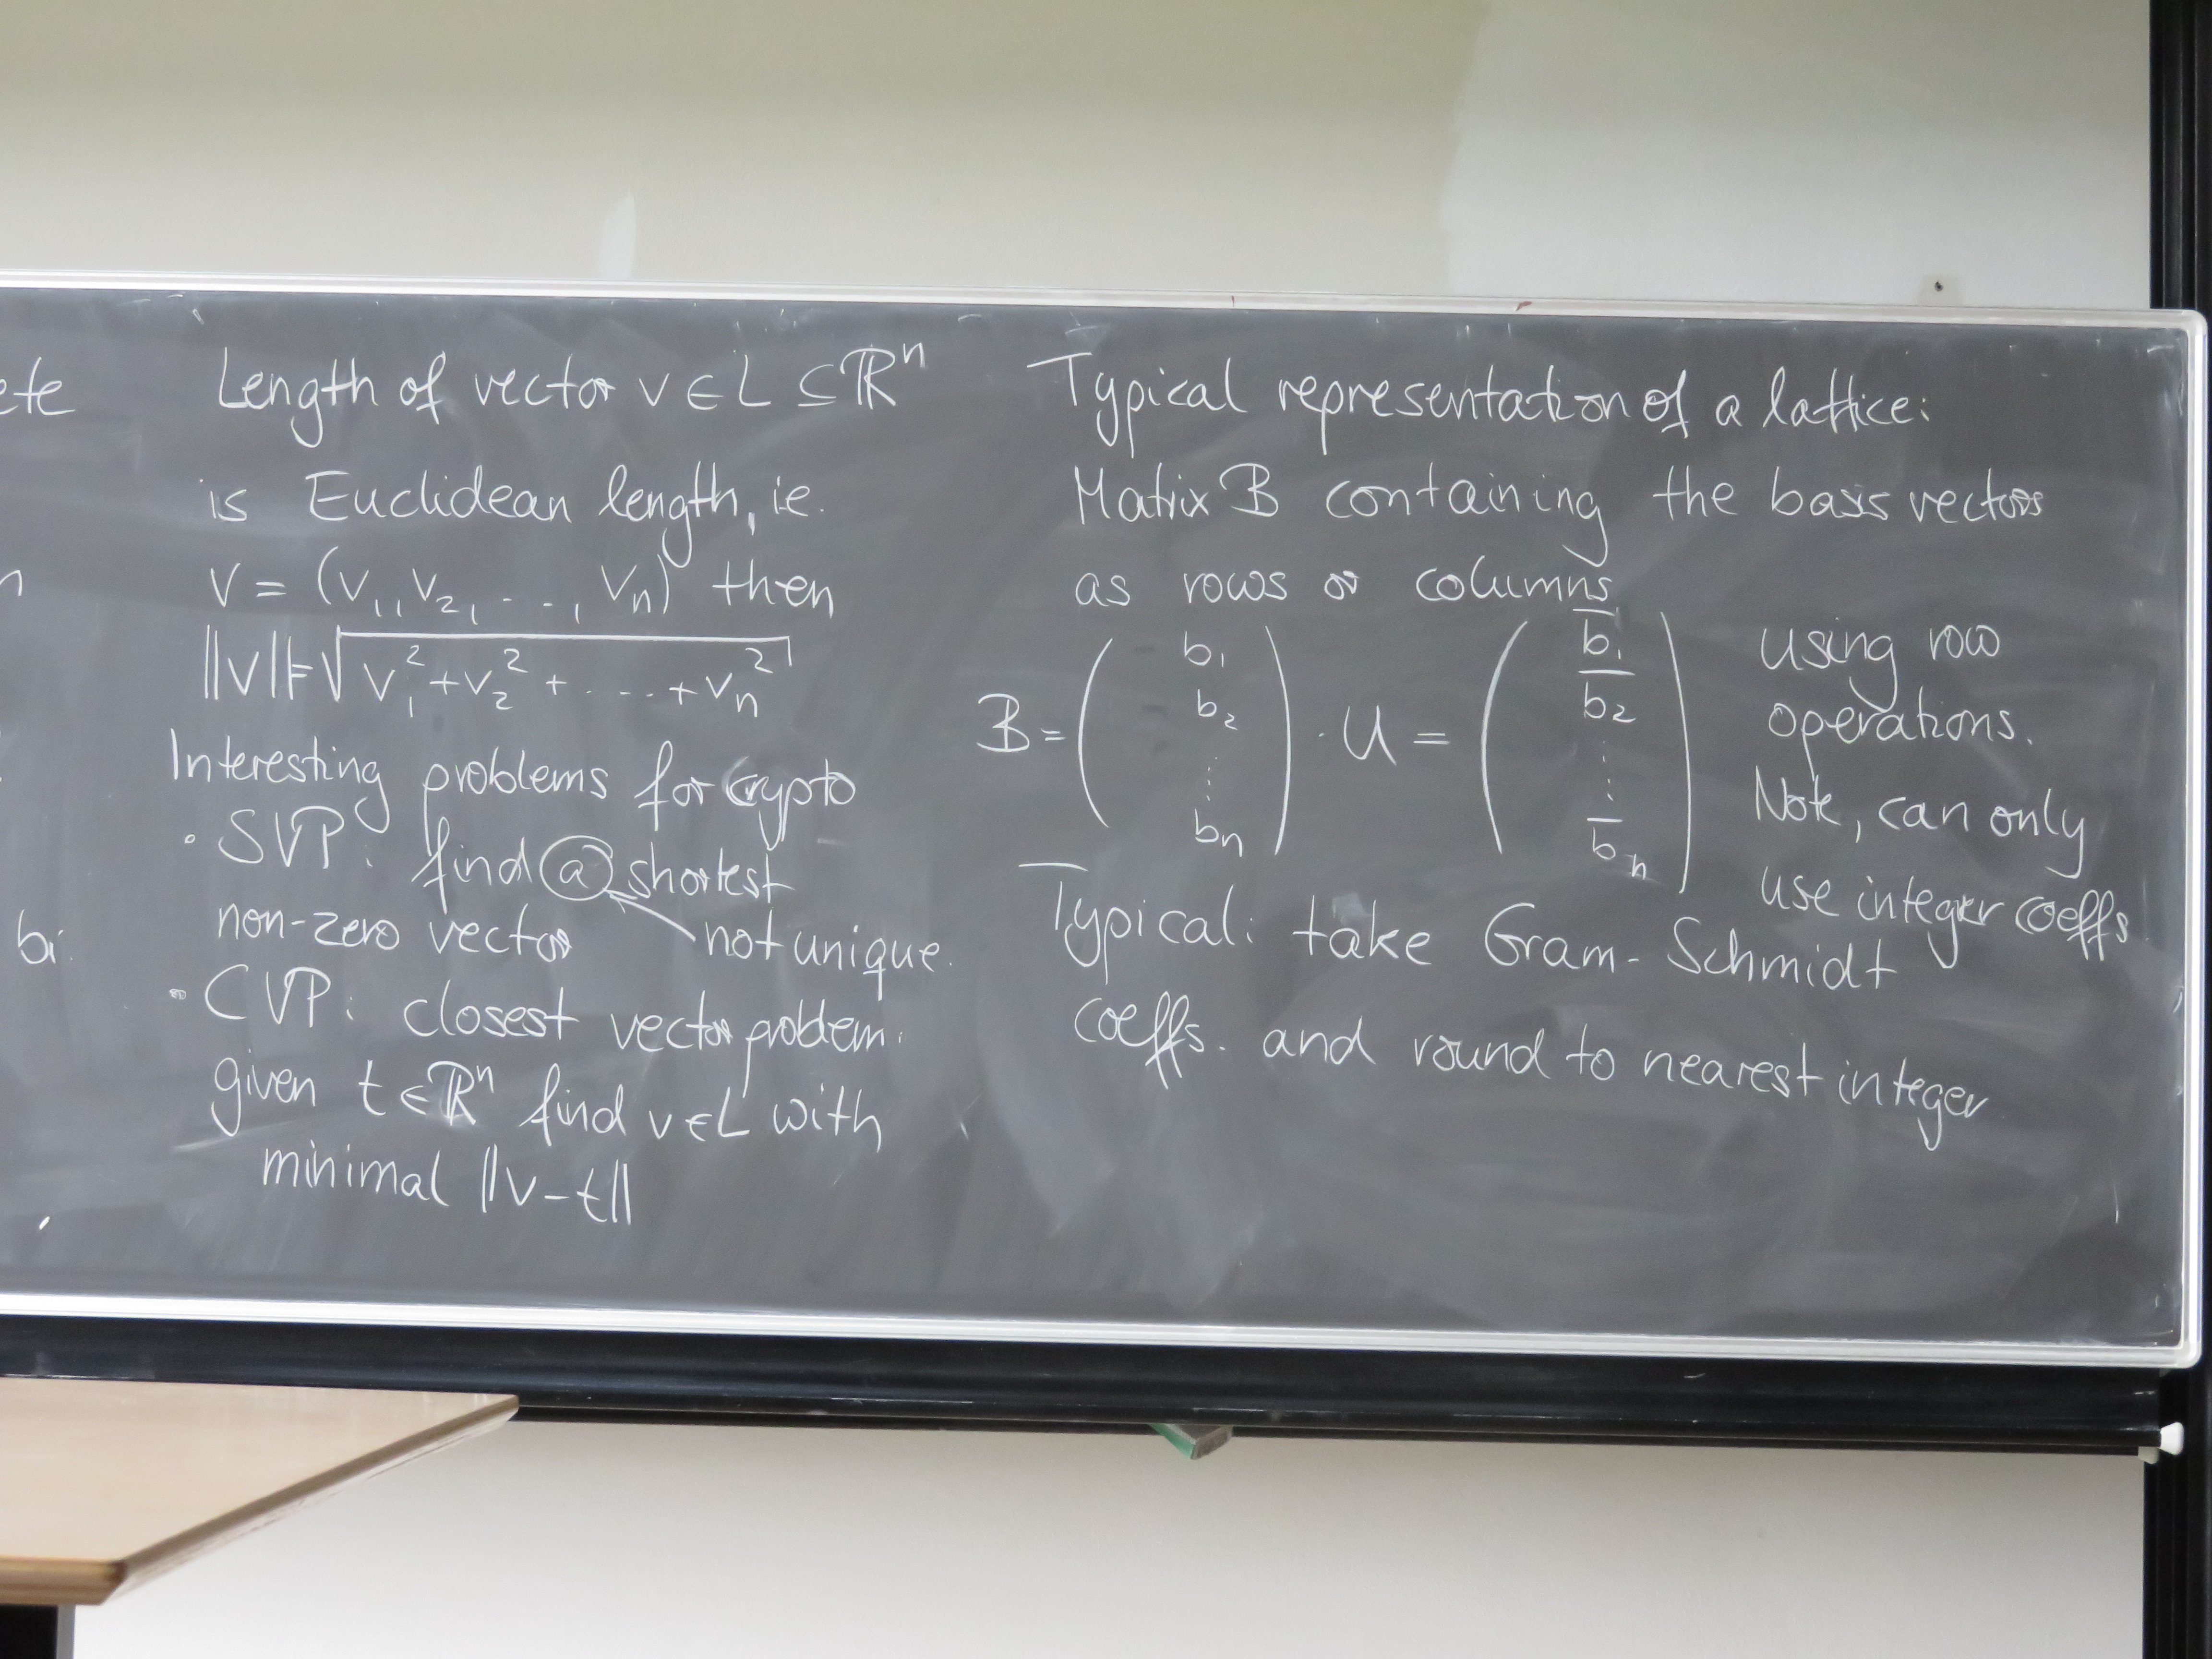 ete
n
bi.
Length of vector v ∈ L ⊆ ℝⁿ
is Euclidean length, ie.
v = (v₁, v₂, . . , vₙ) then
||v|| = √(v₁² + v₂² + . . . . + vₙ²)
Interesting problems for crypto
· SVP: find ⓐ shortest
non-zero vector not unique.
· CVP: closest vector problem:
given t ∈ ℝⁿ find v ∈ L with
minimal ||v - t||
Typical representation of a lattice:
Matrix B containing the basis vectors
as rows or columns
B = ( b₁ b₂ ⋮ bₙ ) · U = ( b̅₁ b̅₂ ⋮ b̅ₙ )
using row
operations.
Note, can only
use integer coeffs.
Typical: take Gram-Schmidt
coeffs. and round to nearest integer